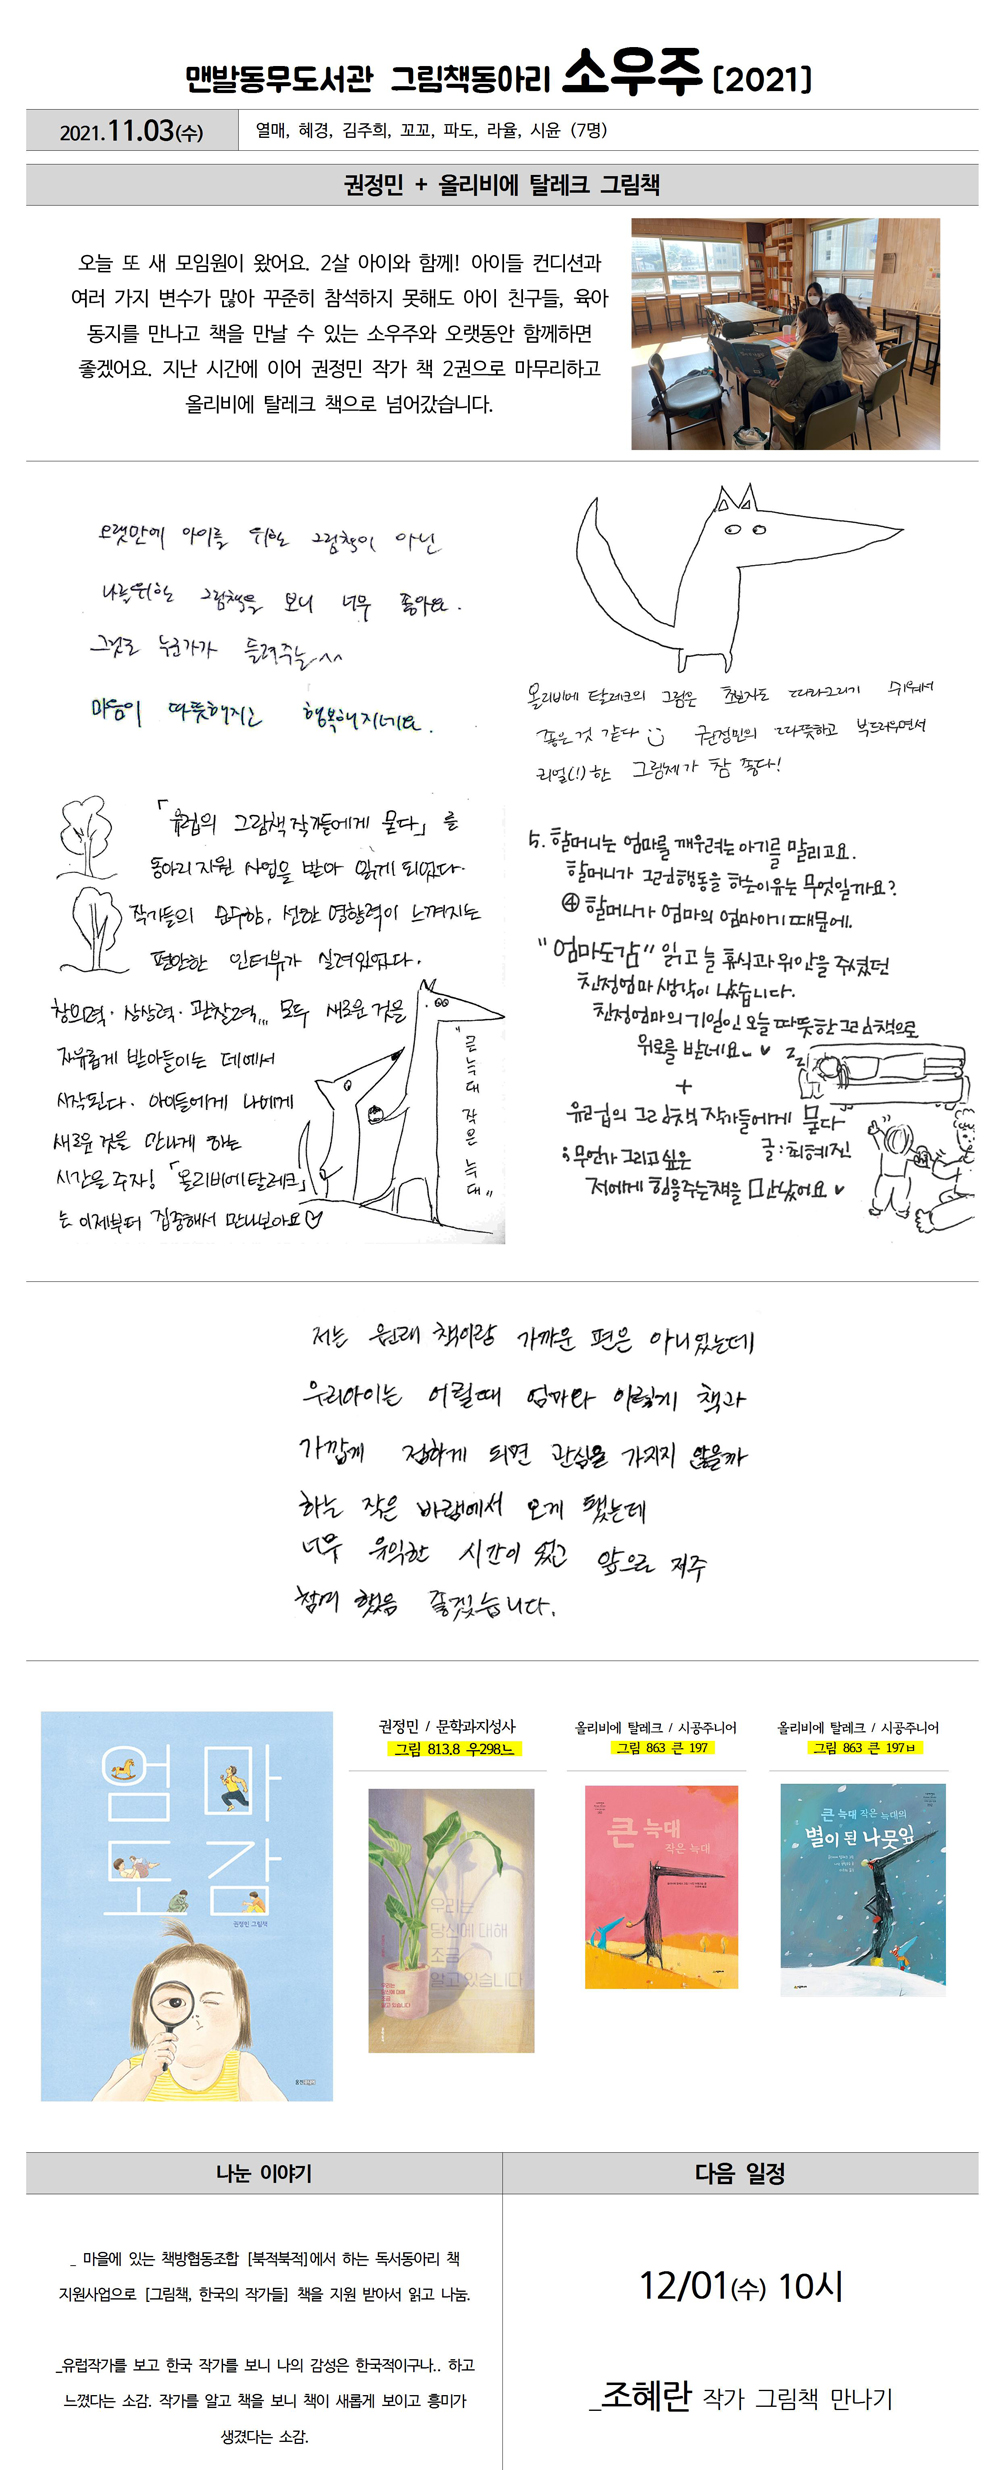 맨발동무도서관 그림책동아리 소우주 [2021]
2021.11.03(수)
열매, 혜경, 김주희, 꼬꼬, 파도, 라율, 시윤 (7명)
권정민 + 올리비에 탈레크 그림책
오늘 또 새 모임원이 왔어요. 2살 아이와 함께! 아이들 컨디션과
여러 가지 변수가 많아 꾸준히 참석하지 못해도 아이 친구들, 육아
동지를 만나고 책을 만날 수 있는 소우주와 오랫동안 함께하면
좋겠어요. 지난 시간에 이어 권정민 작가 책 2권으로 마무리하고
올리비에 탈레크 책으로 넘어갔습니다.
오랫만에 아이를 위한 그림책이 아닌
나를위한 그림책을 보니 너무 좋아요.
그것도 누군가가 들려주는^^
마음이 따뜻해지는 행복해지네요.
올리비에 탈레크의 그림은 초보자도 따라그리기 쉬워서
좋은 것 같다 권정민의 따뜻하고 부드러우면서
리얼(!)한 그림체가 참 좋다!
「유럽의 그림책 작가들에게 묻다」를
동아리지원 사업을 받아 읽게 되었다.
작가들의 순수함, 선한 영향력이 느껴지는
편안한 인터뷰가 실려있었다.
창의력·상상력·관찰력,,, 모두 새로운 것을
자유롭게 받아들이는 데에서
시작된다. 아이들에게 나에게
새로운 것을 만나게 하는
시간을 주자! 「올리비에탈레크」
는 이제부터 집중해서 만나보아요♡
"큰 늑대 작은 늑대"
5. 할머니는 엄마를 깨우려는 아기를 말리고요.
할머니가 그런행동을 하는이유는 무엇일까요?
④ 할머니가 엄마의 엄마이기 때문에.
"엄마도감" 읽고 늘 휴식과 위안을 주셨던
친정엄마 생각이 났습니다.
친정엄마의 기일인 오늘 따뜻한 그림책으로
위로를 받네요.. ♥
zz
+
유럽의 그림책 작가들에게 묻다
글:최혜진
; 무언가 그리고 싶은
저에게 힘을주는책을 만났어요 ♥
저는 원래 책이랑 가까운 편은 아니었는데
우리아이는 어릴때 엄마와 이렇게 책과
가깝게 접하게 되면 관심을 가지지 않을까
하는 작은 바램에서 오게 됐는데
너무 유익한 시간이 였고 앞으로 자주
참여 했음 좋겠습니다.
엄마
도감
권정민 그림책
권정민 / 문학과지성사
그림 813.8 우298느
우리는
당신에 대해
조금
알고 있습니다
우리는
당신에 대해
조금
알고 있습니다
올리비에 탈레크 / 시공주니어
그림 863 큰 197
큰 늑대
작은 늑대
올리비에 탈레크 / 시공주니어
그림 863 큰 197ㅂ
큰 늑대 작은 늑대의
별이 된 나뭇잎
나눈 이야기
_ 마을에 있는 책방협동조합 [북적북적]에서 하는 독서동아리 책
지원사업으로 [그림책, 한국의 작가들] 책을 지원 받아서 읽고 나눔.
_유럽작가를 보고 한국 작가를 보니 나의 감성은 한국적이구나.. 하고
느꼈다는 소감. 작가를 알고 책을 보니 책이 새롭게 보이고 흥미가
생겼다는 소감.
다음 일정
12/01(수) 10시
_조혜란 작가 그림책 만나기